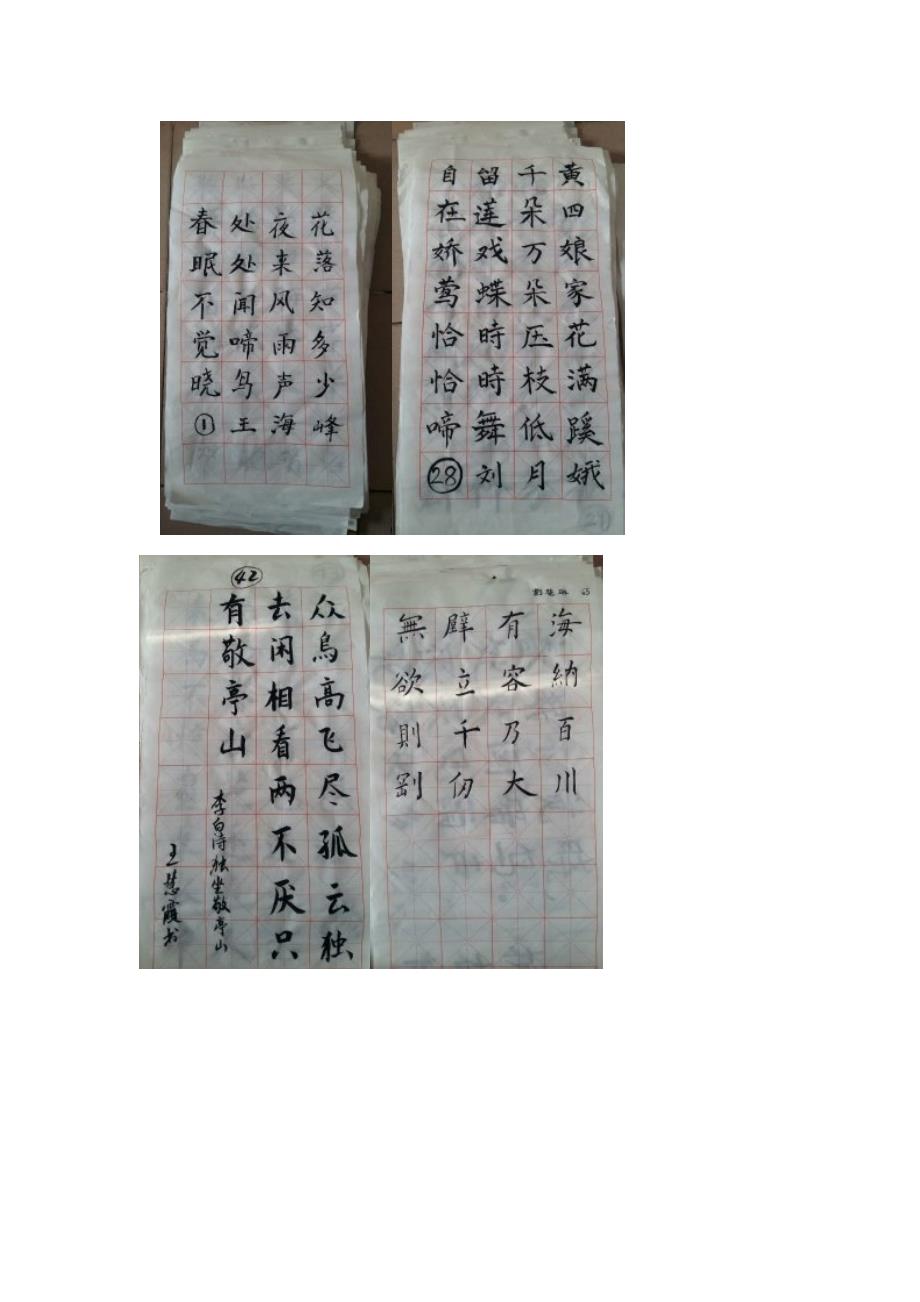 春眠不觉晓①
处处闻啼鸟王
夜来风雨声海
花落知多少峰
黄四娘家花满蹊娥
千朵万朵压枝低月
留莲戏蝶時時舞刘
自在娇莺恰恰啼㉘
㊷
众鳥高飞尽孤云独
去闲相看两不厌只
有敬亭山
李白诗独坐敬亭山
王慧霞书
海納百川
有容乃大
壁立千仞
無欲則剛